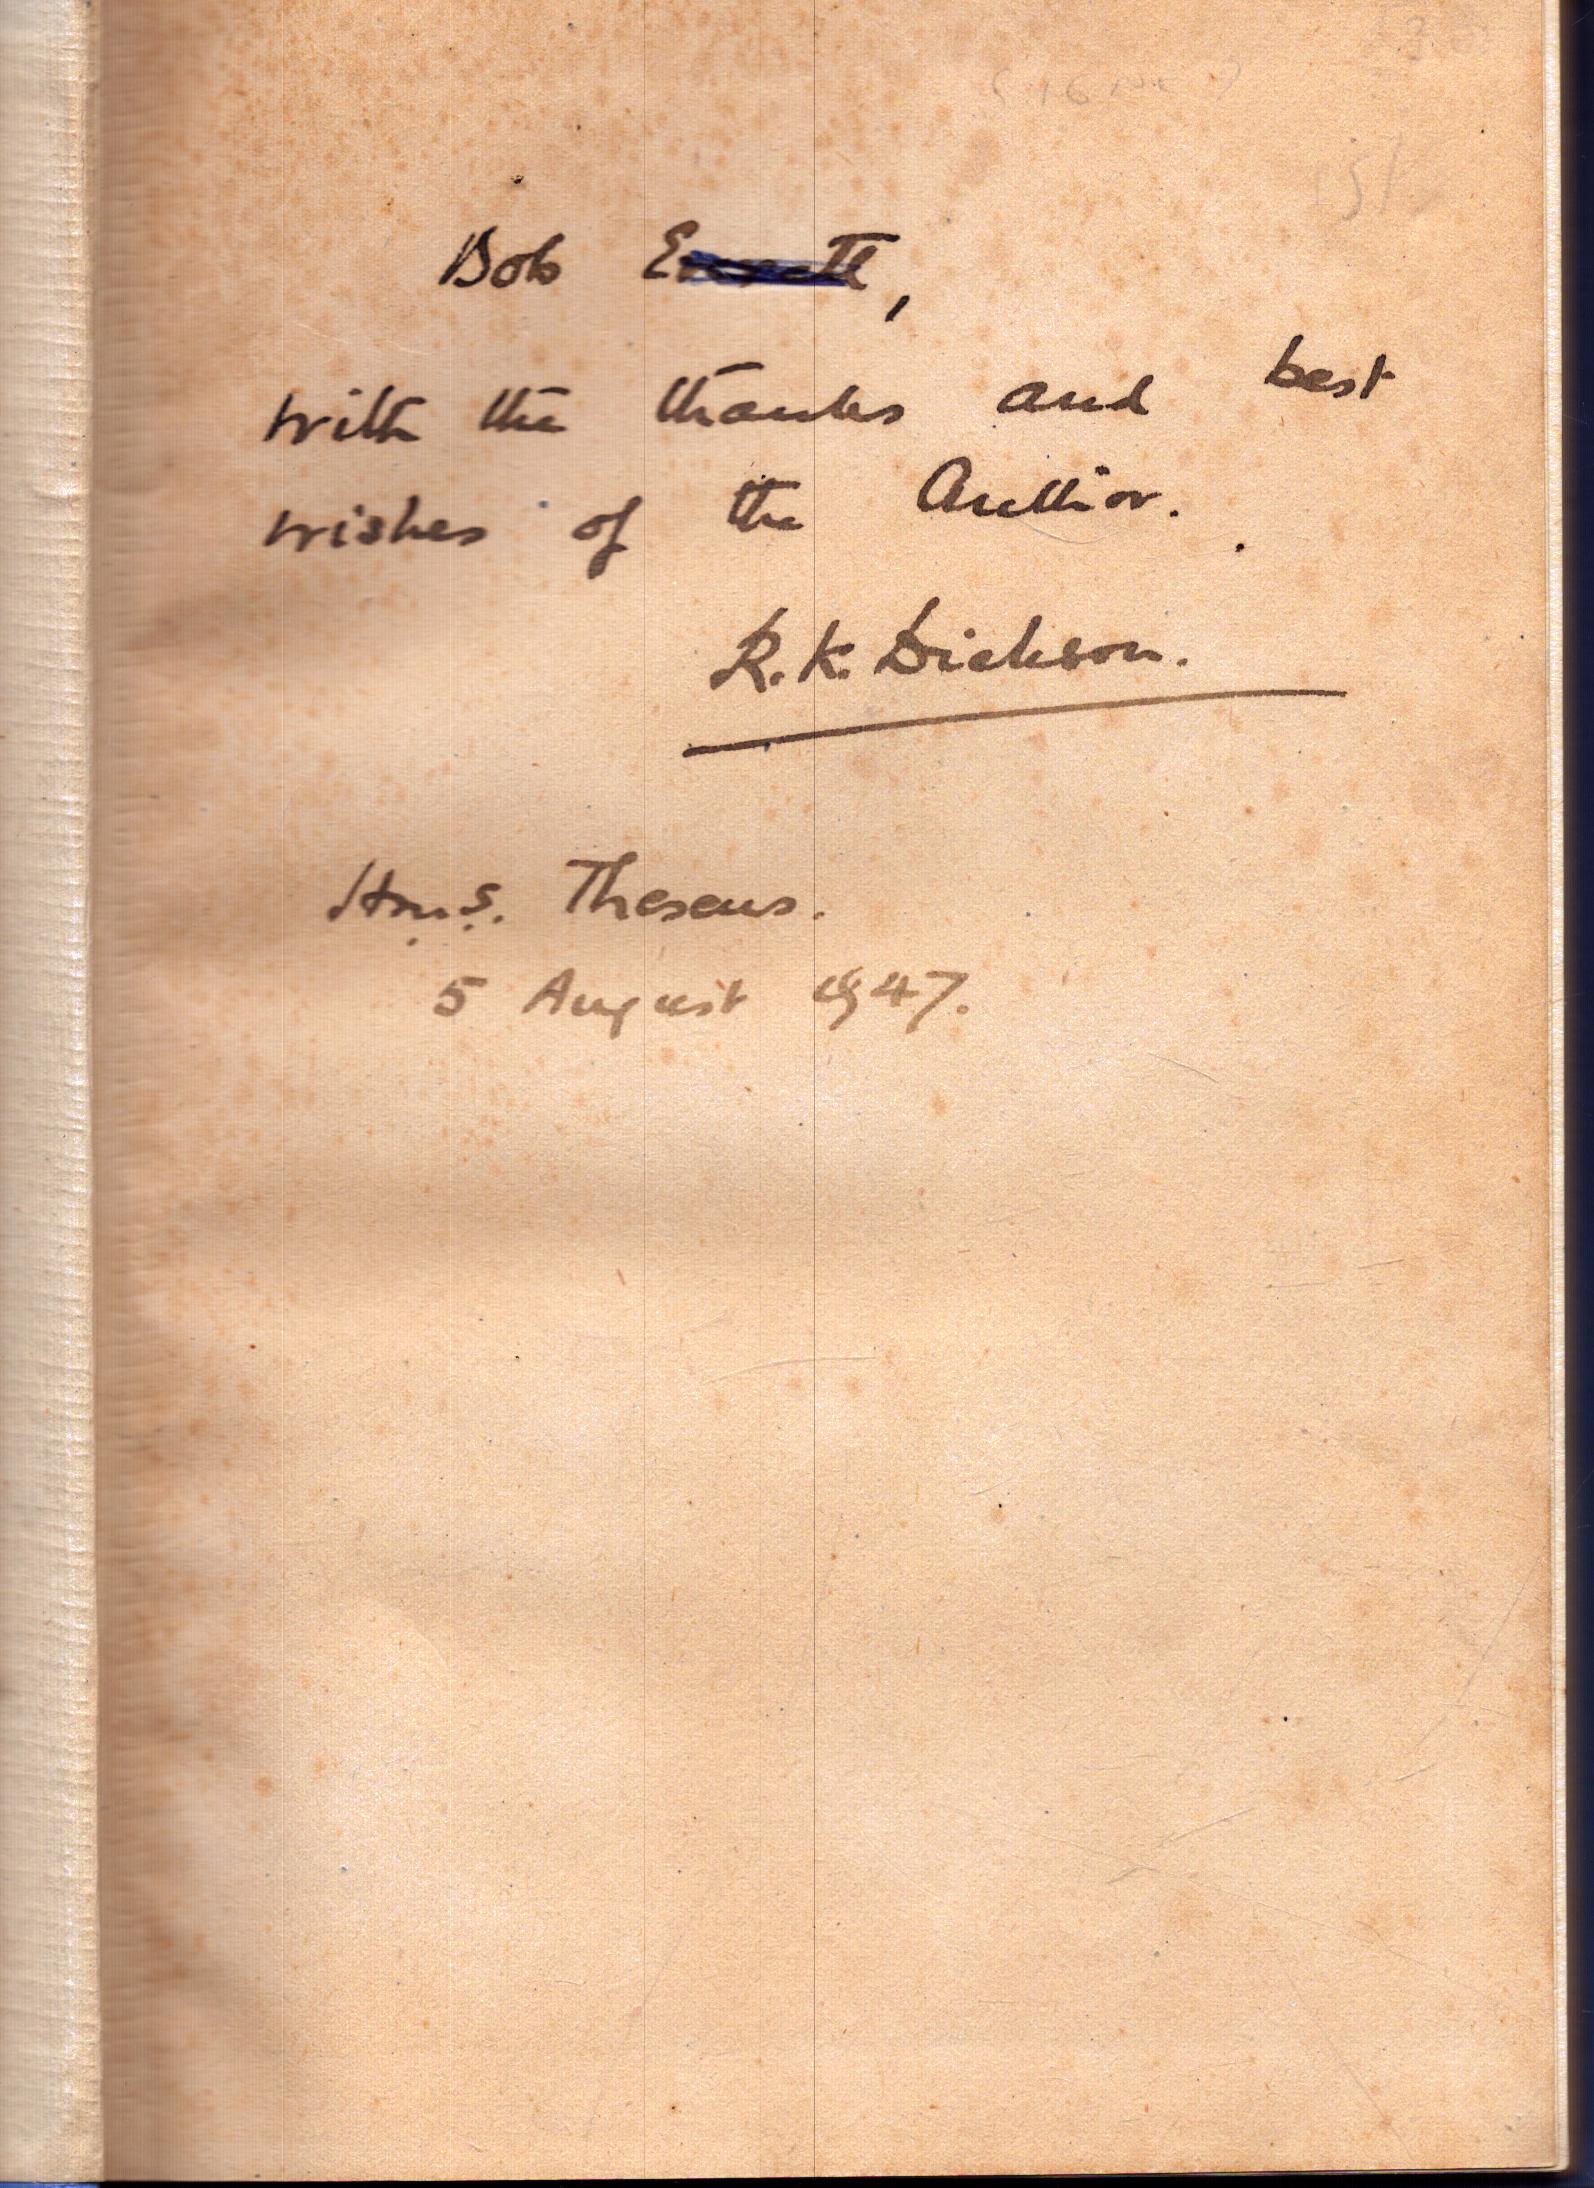 15/
Bob
with the thanks and best
wishes of the Author.
R.K. Dickson.
H.M.S. Theseus.
5 August 1947.